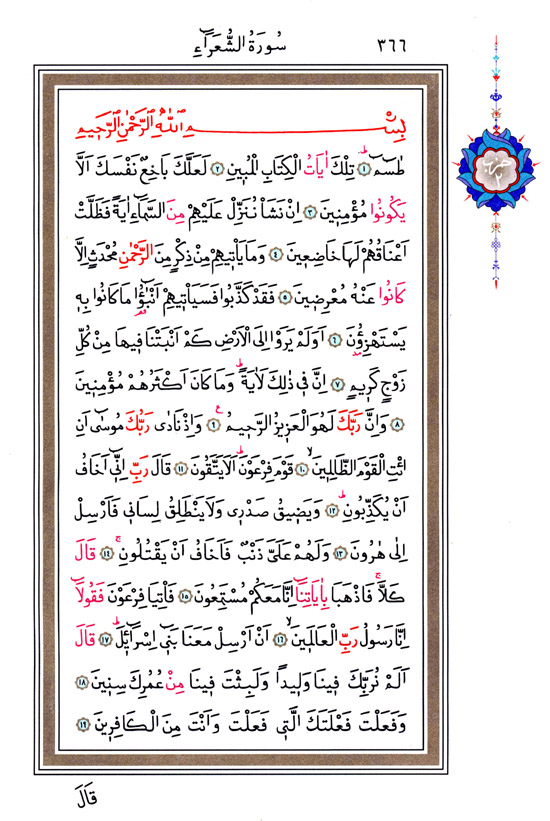 سُورَةُ الشُّعَرَٓاءِ ٣٦٦
بِسْمِ اللّٰهِ الرَّحْمٰنِ الرَّحٖيمِ
طٰسٓمٓ ۜ ﴿١﴾ تِلْكَ اٰيَاتُ الْكِتَابِ الْمُبٖينِ ﴿٢﴾ لَعَلَّكَ بَاخِعٌ نَفْسَكَ اَلَّا
يَكُونُوا مُؤْمِنٖينَ ﴿٣﴾ اِنْ نَشَأْ نُنَزِّلْ عَلَيْهِمْ مِنَ السَّمَٓاءِ اٰيَةً فَظَلَّتْ
اَعْنَاقُهُمْ لَهَا خَاضِعٖينَ ﴿٤﴾ وَمَا يَأْتٖيهِمْ مِنْ ذِكْرٍ مِنَ الرَّحْمٰنِ مُحْدَثٍ اِلَّا
كَانُوا عَنْهُ مُعْرِضٖينَ ﴿٥﴾ فَقَدْ كَذَّبُوا فَسَيَأْتٖيهِمْ اَنْبٰٓؤُا مَا كَانُوا بِهٖ
يَسْتَهْزِؤُ۫نَ ﴿٦﴾ اَوَلَمْ يَرَوْا اِلَى الْاَرْضِ كَمْ اَنْبَتْنَا فٖيهَا مِنْ كُلِّ
زَوْجٍ كَرٖيمٍ ﴿٧﴾ اِنَّ فٖي ذٰلِكَ لَاٰيَةًۜ وَمَا كَانَ اَكْثَرُهُمْ مُؤْمِنٖينَ
﴿٨﴾ وَاِنَّ رَبَّكَ لَهُوَ الْعَزٖيزُ الرَّحٖيمُ ﴿٩﴾ وَاِذْ نَادٰى رَبُّكَ مُوسٰٓى اَنِ
ائْتِ الْقَوْمَ الظَّالِمٖينَۙ ﴿١٠﴾ قَوْمَ فِرْعَوْنَۜ اَلَا يَتَّقُونَ ﴿١١﴾ قَالَ رَبِّ اِنّٖٓي اَخَافُ
اَنْ يُكَذِّبُونِۜ ﴿١٢﴾ وَيَضٖيقُ صَدْرٖي وَلَا يَنْطَلِقُ لِسَانٖي فَاَرْسِلْ
اِلٰى هٰرُونَ ﴿١٣﴾ وَلَهُمْ عَلَيَّ ذَنْبٌ فَاَخَافُ اَنْ يَقْتُلُونِۚ ﴿١٤﴾ قَالَ
كَلَّاۚ فَاذْهَبَا بِاٰيَاتِنَٓا اِنَّا مَعَكُمْ مُسْتَمِعُونَ ﴿١٥﴾ فَأْتِيَا فِرْعَوْنَ فَقُولَٓا
اِنَّا رَسُولُ رَبِّ الْعَالَمٖينَۙ ﴿١٦﴾ اَنْ اَرْسِلْ مَعَنَا بَنٖٓي اِسْرَٓائٖلَۜ ﴿١٧﴾ قَالَ
اَلَمْ نُرَبِّكَ فٖينَا وَلٖيدًا وَلَبِثْتَ فٖينَا مِنْ عُمُرِكَ سِنٖينَ ﴿١٨﴾
وَفَعَلْتَ فَعْلَتَكَ الَّتٖي فَعَلْتَ وَاَنْتَ مِنَ الْكَافِرٖينَ ﴿١٩﴾
قَالَ